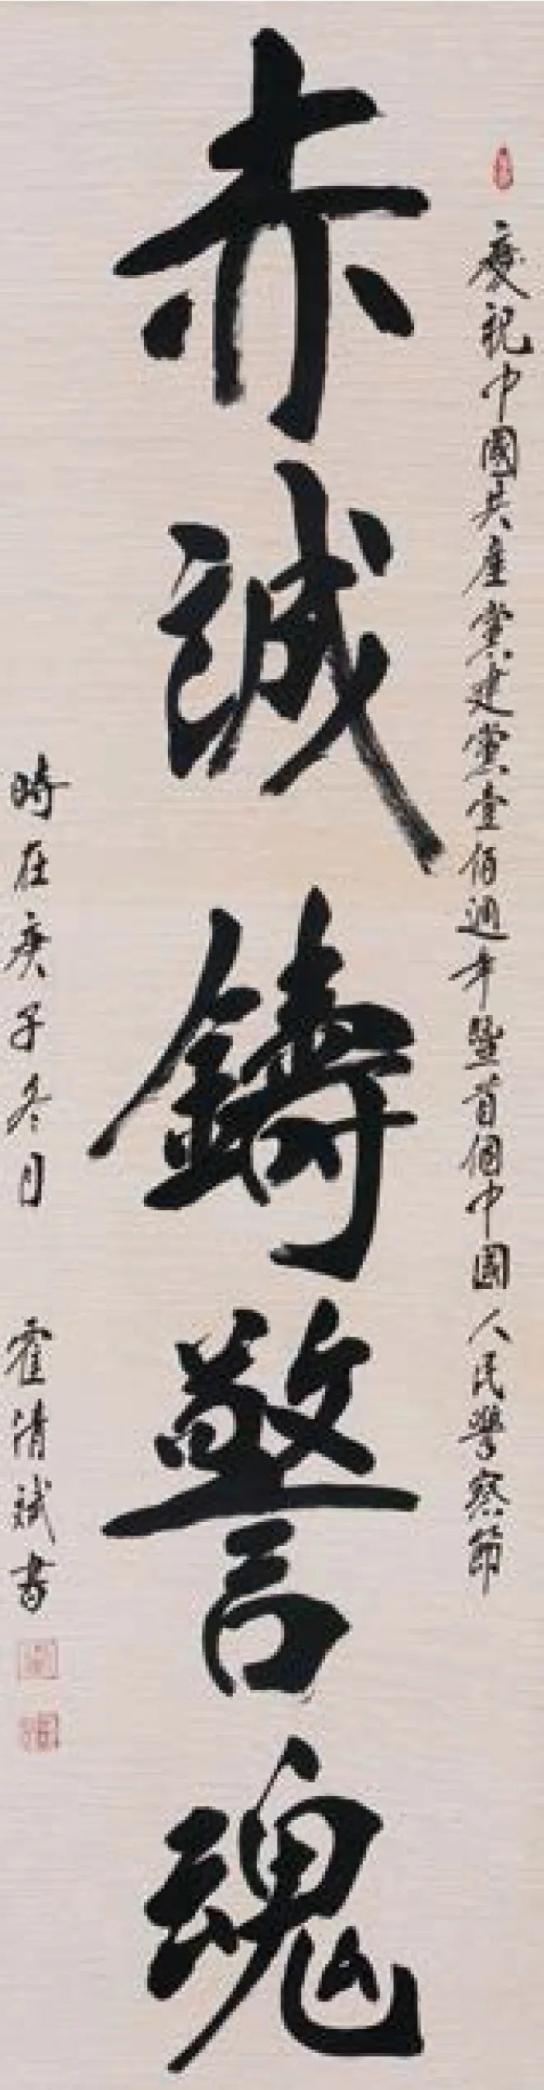 慶祝中國共產黨建黨壹佰週年暨首個中國人民警察節
赤誠鑄警魂
時在庚子冬月 霍清斌書